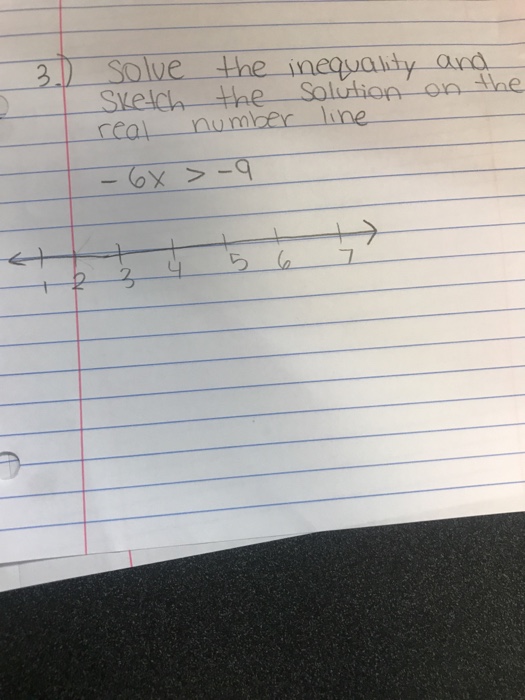 3.) Solve the inequality and
Sketch the solution on the
real number line
-6x > -9
1 2 3 4 5 6 7